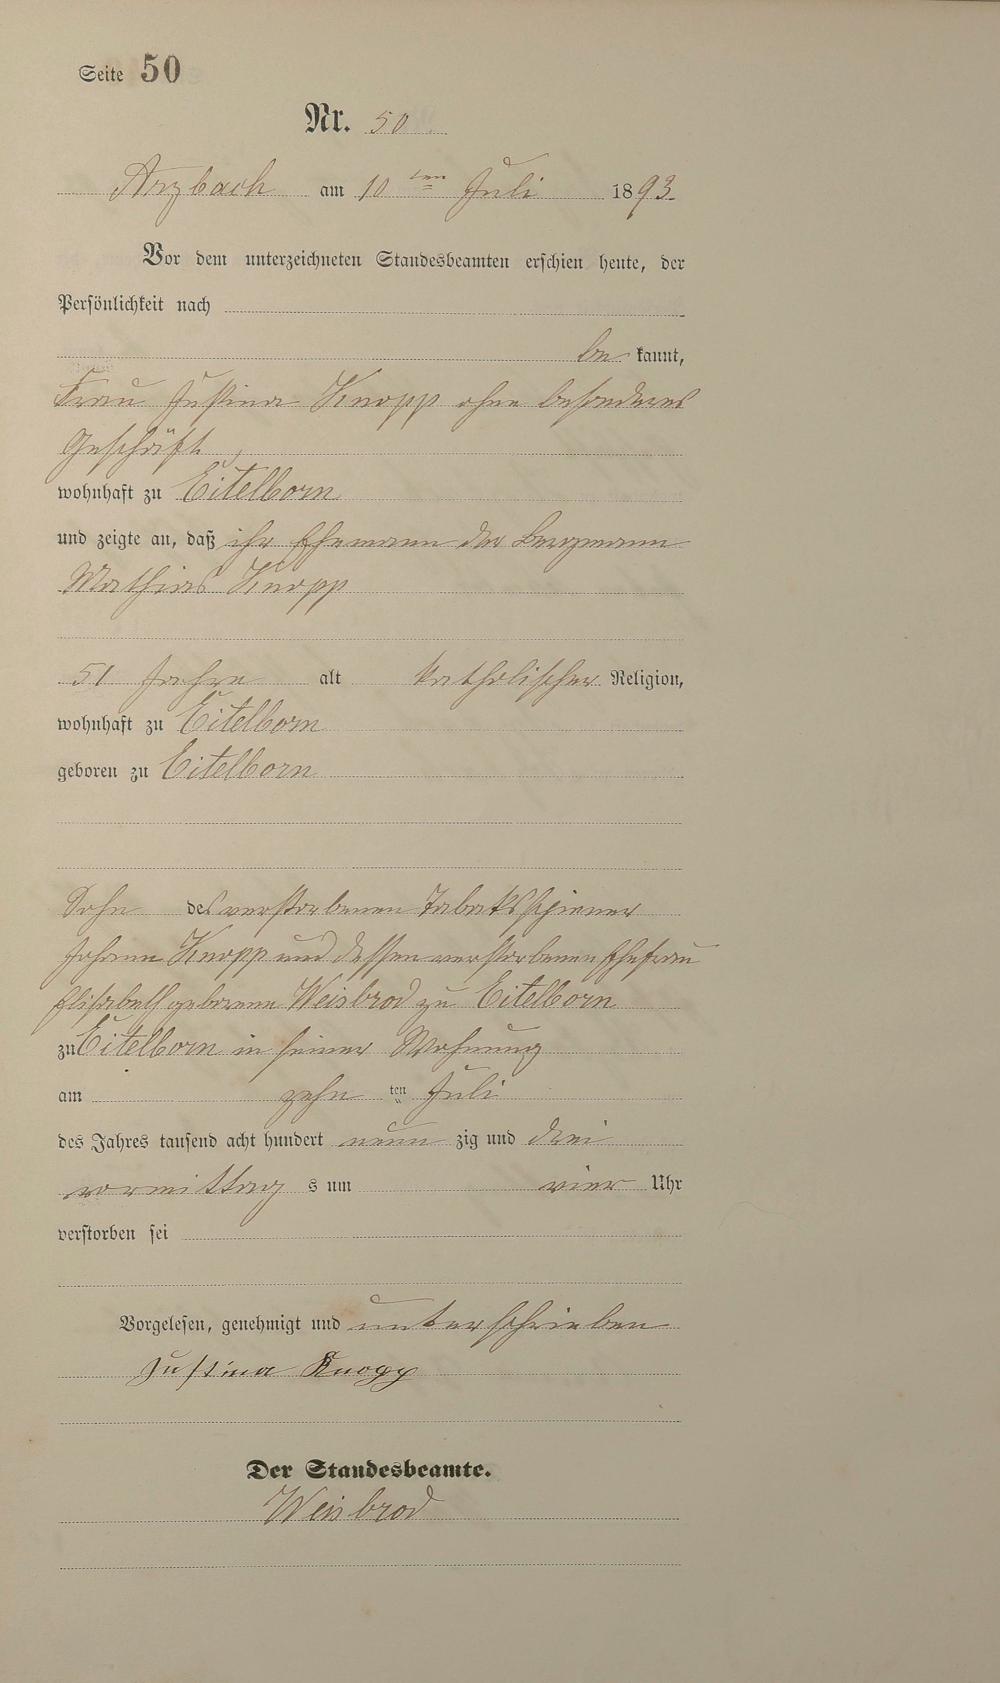 Seite 50
Nr. 50
Arzbach am 10 ten Juli 1893
Vor dem unterzeichneten Standesbeamten erschien heute, der
Persönlichkeit nach
be kannt,
Frau Justina Knopp ohne besonderes
Geschäft,
wohnhaft zu Eitelborn
und zeigte an, daß ihr Ehemann der Bergmann
Mathias Knopp
51 Jahre alt katholischer Religion,
wohnhaft zu Eitelborn
geboren zu Eitelborn
Sohn des verstorbenen Tabaksspiener
Johann Knopp und dessen verstorbenen Ehefrau
Elisabeth geborene Weisbrod zu Eitelborn
zu Eitelborn in seiner Wohnung
am zehn ten Juli
des Jahres tausend acht hundert neun zig und drei
vormittag s um vier Uhr
verstorben sei
Vorgelesen, genehmigt und unterschrieben
Justina Knopp
Der Standesbeamte.
Weisbrod